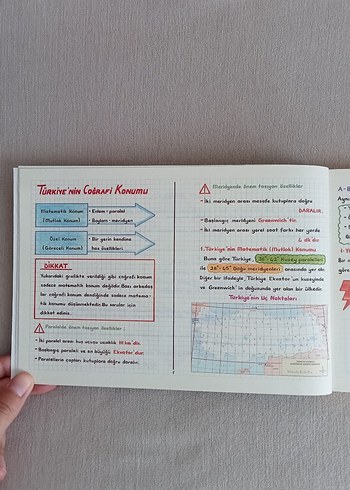 TÜRKİYE'NİN COĞRAFİ KONUMU
Matematik Konum
(Mutlak Konum)
- Enlem - paralel
- Boylam - meridyen
Özel Konum
(Göreceli Konum)
- Bir yerin kendine
has özellikleri
DİKKAT
Yukarıdaki grafikte verildiği gibi coğrafi konum
sadece matematik konum değildir. Bazı
bir coğrafi konum dendiğinde sadece matema-
tik konumu düşünmektedir. Bu konular için
dikkat ediniz.
Paralelde önem taşıyan özellikler
- İki paralel arası kuş uçuşu uzaklık 111 km'dir.
- Başlangıç paraleli ve en büyüğü Ekvator'dur.
- Paralellerin çapları kutuplara doğru daralır.
Meridyende önem taşıyan özellikler
- İki meridyen arası mesafe kutuplara doğru
DARALIR.
- Başlangıç meridyeni Greenwich'tir.
- İki meridyen arası yerel saat farkı her yerde
4 dk'dır.
1. Türkiye'nin Matematik (Mutlak) Konumu
Buna göre Türkiye, 36°-42° Kuzey paralelleri
ile 26°-45° Doğu meridyenleri arasında yer alır.
Diğer bir ifadeyle, Türkiye Ekvator'un kuzeyinde
ve Greenwich'in doğusunda yer alan bir ülkedir.
Türkiye'nin Uç Noktaları